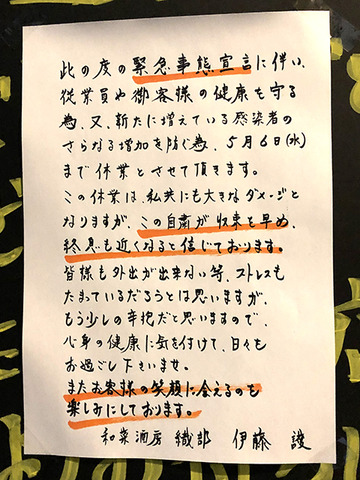 此の度の緊急事態宣言に伴い、
従業員や御客様の健康を守る
為、又、新たに増えている感染者の
さらなる増加を防ぐ為、5月6日(水)
まで休業とさせて頂きます。
この休業は、私共にも大きなダメージと
なりますが、この自粛が収束を早め、
終息も近くなると信じております。
皆様も外出が出来ない等、ストレスも
たまっているだろうとは思いますが、
もう少しの辛抱だと思いますので、
心身の健康に気を付けて、日々を
お過ごし下さいませ。
またお客様の笑顔に会えるのを
楽しみにしております。
和菜酒房 織部 伊藤 護